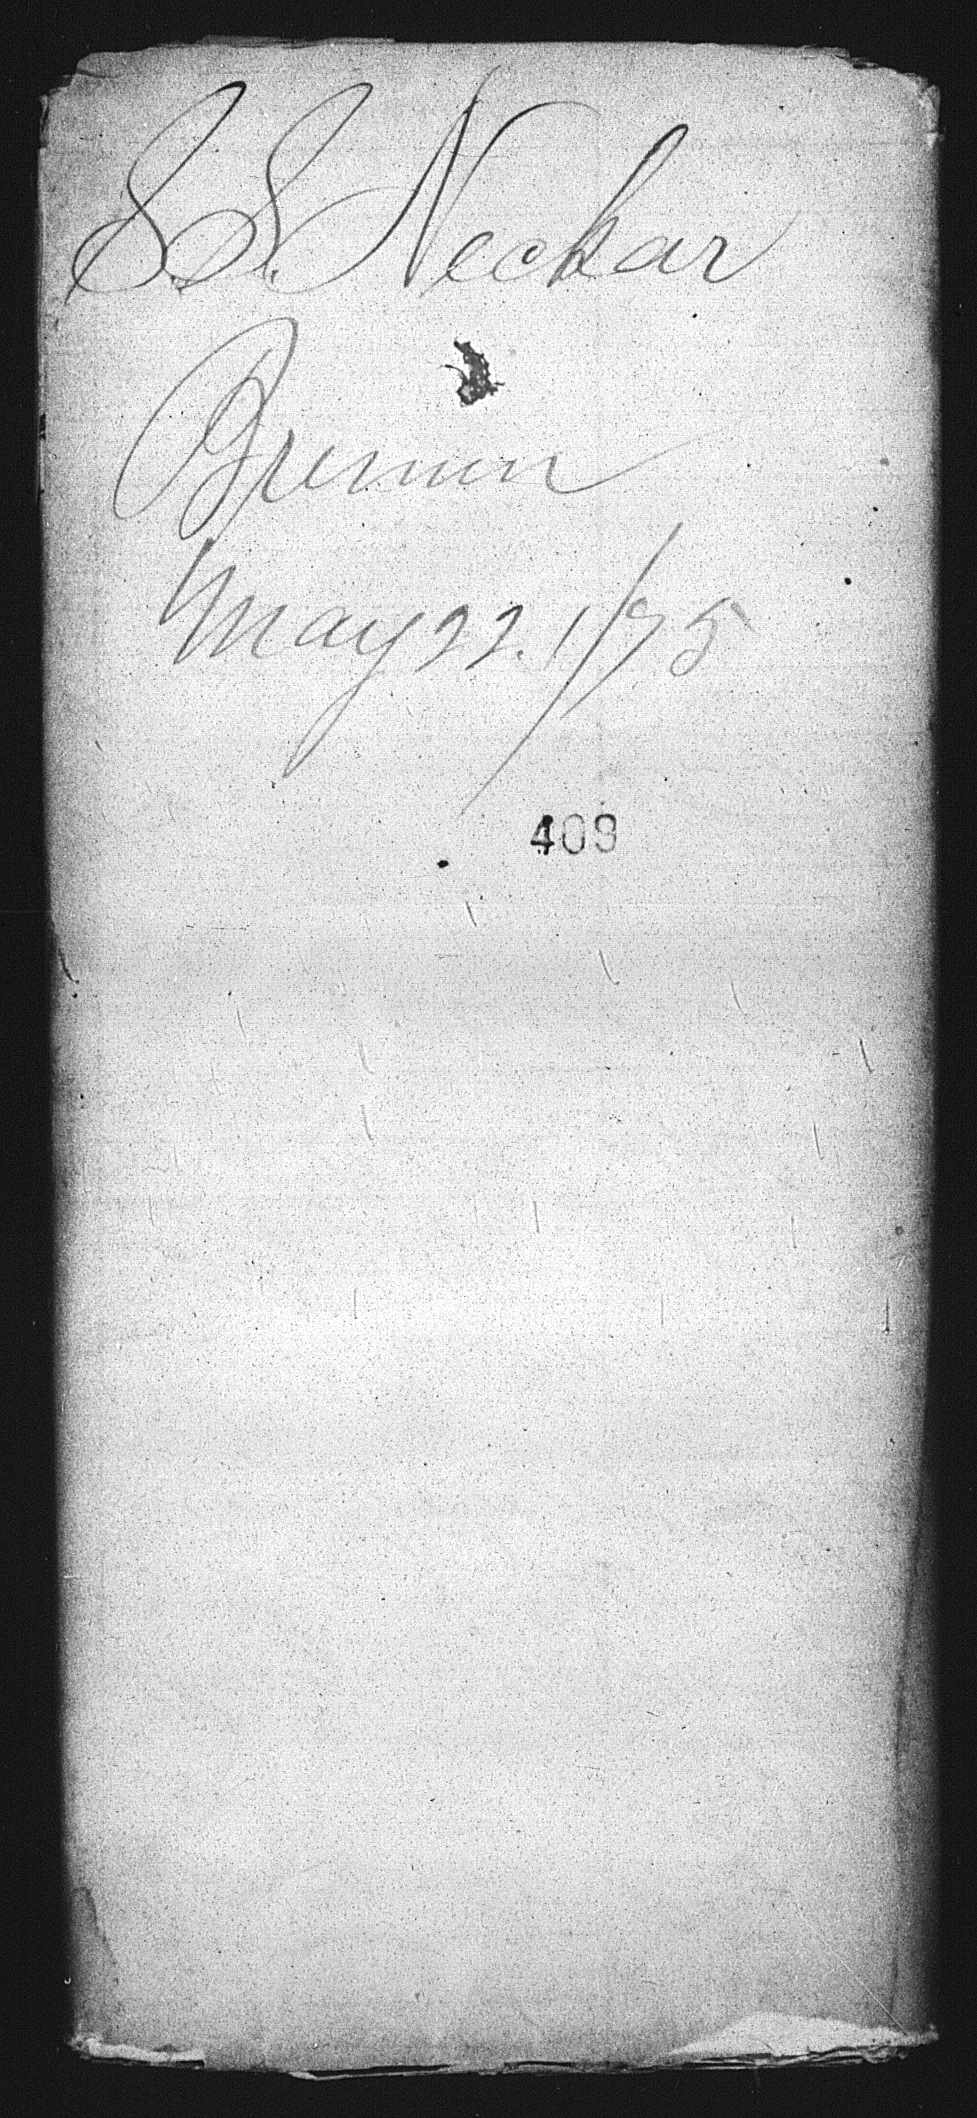 SS. Neckar
Bremen
May 22. 1/75
409